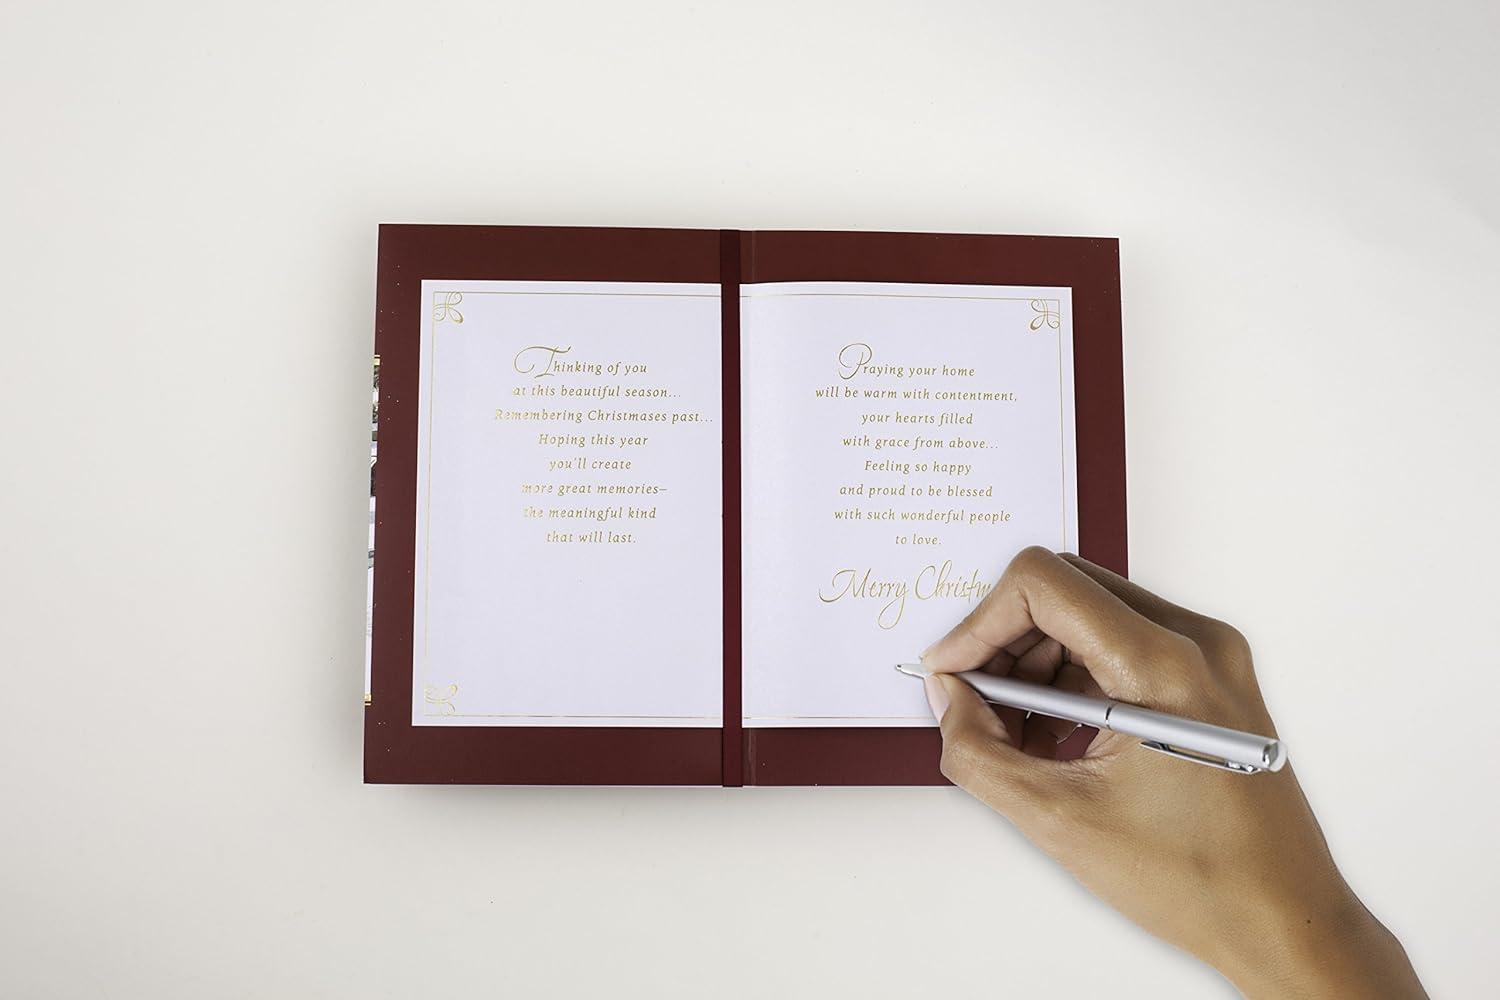 Thinking of you
at this beautiful season...
Remembering Christmases past...
Hoping this year
you'll create
more great memories–
the meaningful kind
that will last.
Praying your home
will be warm with contentment,
your hearts filled
with grace from above...
Feeling so happy
and proud to be blessed
with such wonderful people
to love.
Merry Christm